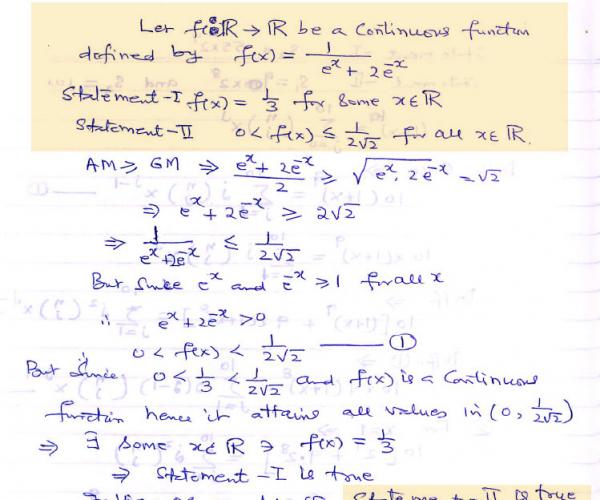 Let f: R → R be a Continuous function
defined by f(x) = 1/(e^x + 2e^-x)
Statement-I f(x) = 1/3 for some x ∈ R
Statement-II 0 < f(x) ≤ 1/(2√2) for all x ∈ R.
AM ≥ GM ⇒ (e^x + 2e^-x)/2 ≥ √(e^x. 2e^-x) = √2
⇒ e^x + 2e^-x ≥ 2√2
⇒ 1/(e^x + 2e^-x) ≤ 1/(2√2)
But Since e^x and e^-x ≥ 1 for all x
∴ e^x + 2e^-x > 0
∴ 0 < f(x) < 1/(2√2) — ①
But Since 0 < 1/3 < 1/(2√2) and f(x) is a Continuous
function hence it attains all values in (0, 1/(2√2))
⇒ ∃ some x ∈ R ∋ f(x) = 1/3
⇒ Statement-I is true
is true